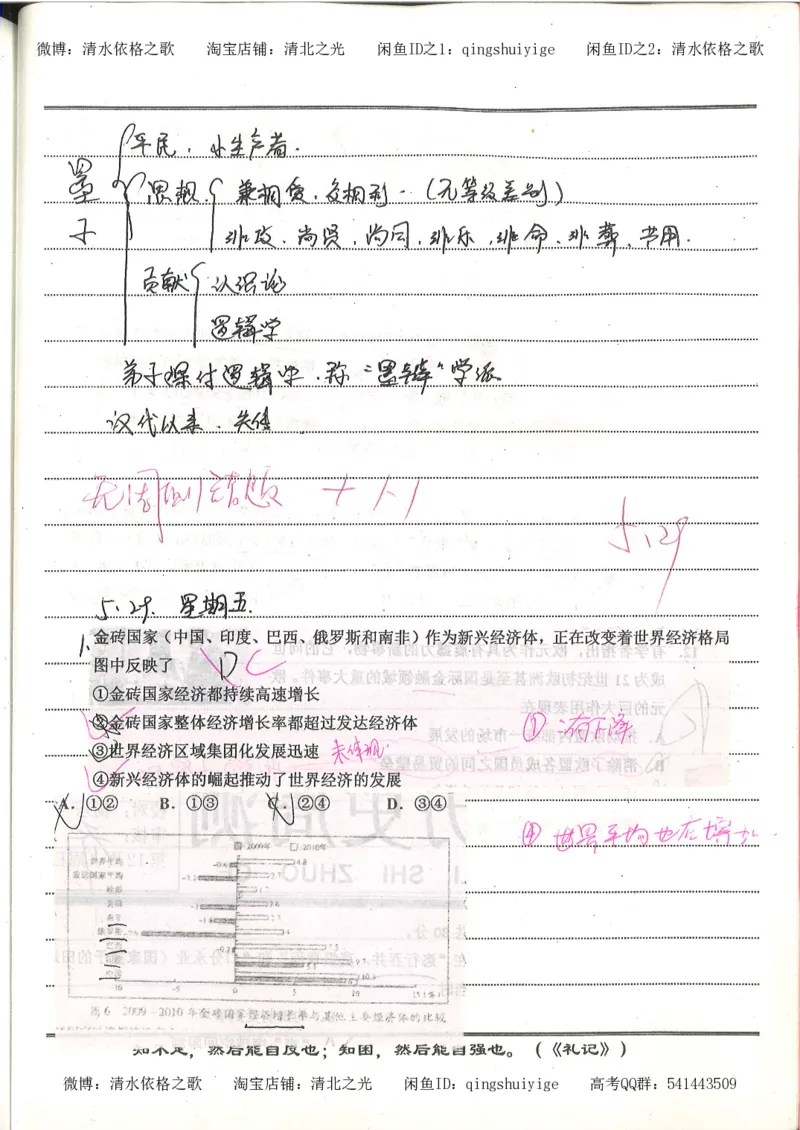 微博：清水依格之歌 淘宝店铺：清北之光 闲鱼ID之1：qingshuiyige 闲鱼ID之2：清水依格之歌
墨子
平民、小生产者.
思想 兼相爱、交相利.（无等级差别）
非攻、尚贤、尚同、非乐、非命、非葬、节用.
贡献 认识论
逻辑学
弟子 逻辑学、称“墨辩”学派
汉代以来、失传
5.29
5.29. 星期五.
1. 金砖国家（中国、印度、巴西、俄罗斯和南非）作为新兴经济体，正在改变着世界经济格局
图中反映了 D C
①金砖国家经济都持续高速增长
②金砖国家整体经济增长率都超过发达经济体
① 有下降
③世界经济区域集团化发展迅速 未体现
④新兴经济体的崛起推动了世界经济的发展
A．①② B．①③ C．②④ D．③④
④ 世界平均也在增加
2009年 2010年
世界平均 -0.6 4.8
发达国家平均 -3.2 2.7
-10 -5 0 5 10 15 (%)
图6 2009-2010年金砖国家经济增长率与其他主要经济体的比较
知不足，然后能自反也；知困，然后能自强也。（《礼记》）
微博：清水依格之歌 淘宝店铺：清北之光 闲鱼ID：qingshuiyige 高考QQ群：541443509